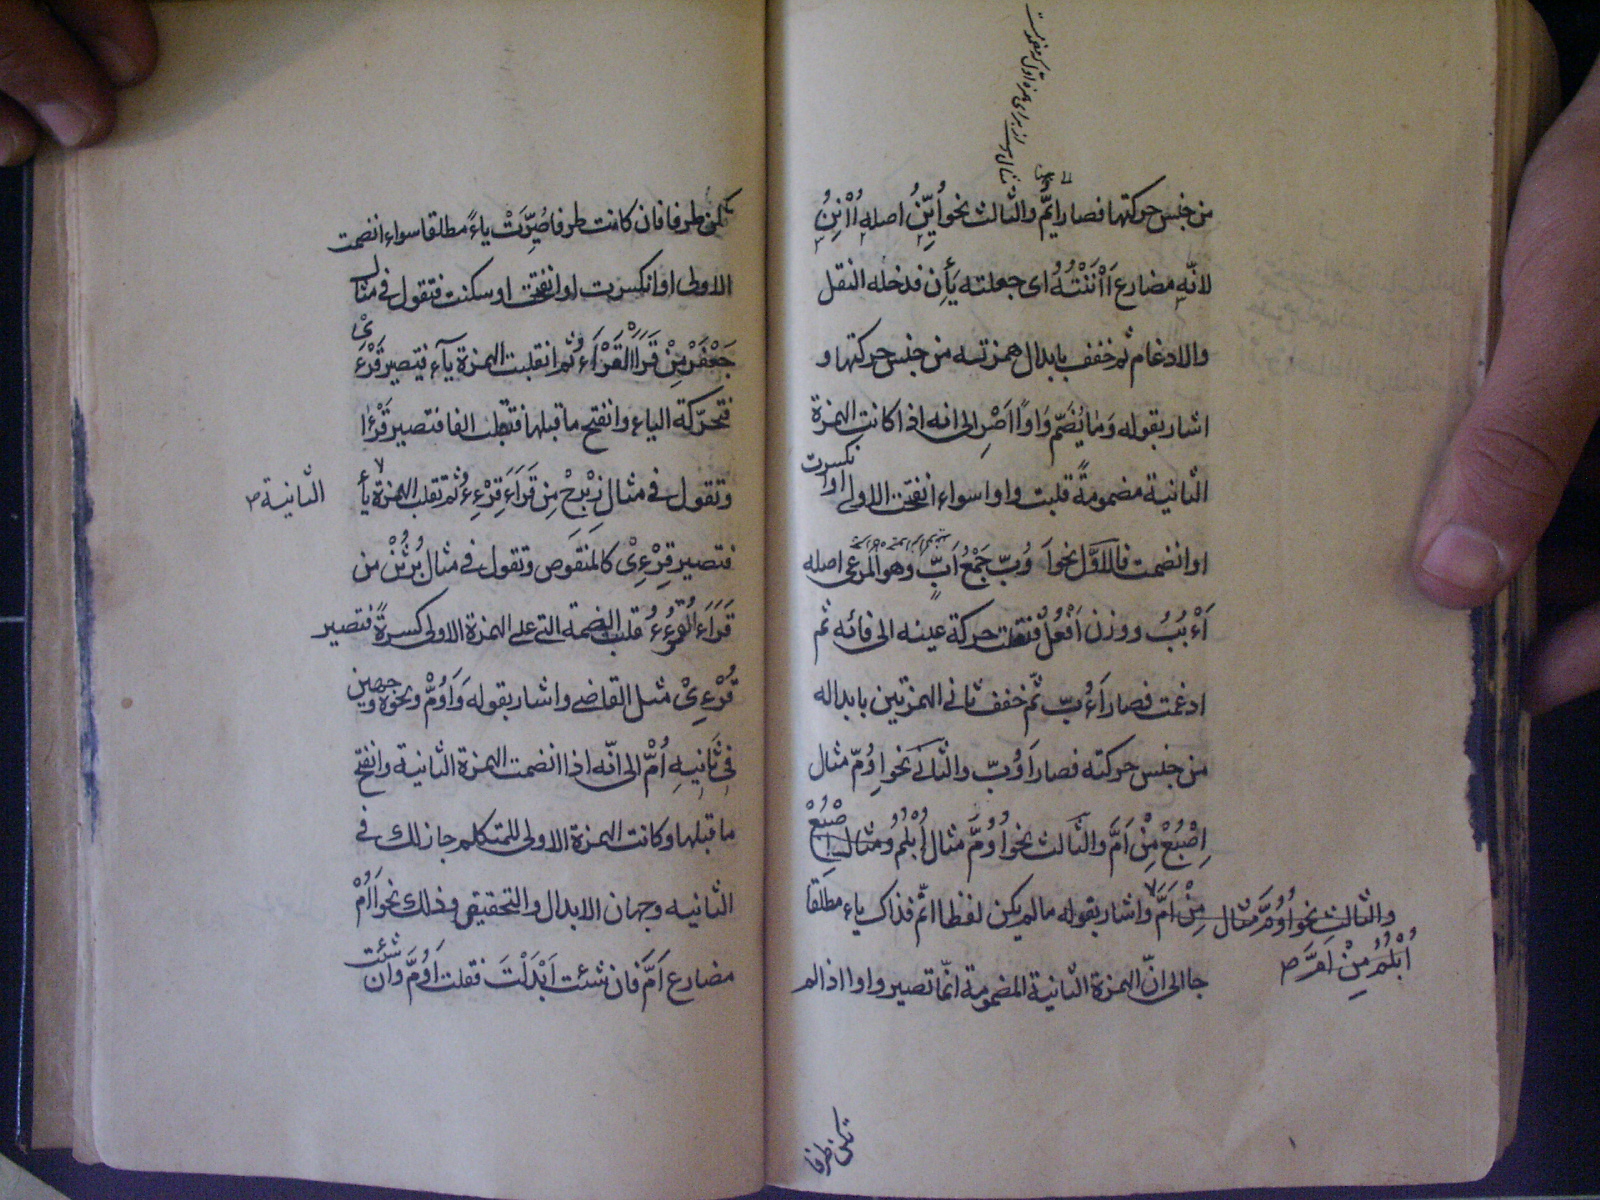 من جنس حركتها فصار ايمّ والثالث نحو اُيِنُّ اصله اُاْنِنُ
لانّه مضارع اَاْنَنْتُهُ اى جعلته يَأِن فدخله النقل
والادغام ثم خفف بابدال همزتيه من جنس حركتها و
اشار بقوله وَمٰا يُضَمّ وَاوًا اَصْرِ الى انه اذا كانت الهمزة
الثانية مضمومةً قلبت واوا سواء انفتحت الاولى او انكسرت
او انضمت فالاوّل نحو اَوُبّ جَمْعُ اَبّ وهو المرعى اصله
اَءْبُبُ ووزن اَفْعُلُ فنقلت حركة عينه الى فائه ثم
ادغمت فصار اَءُبّ ثمّ خفف ثانى الهمزتين بابداله
من جنس حركته فصار اَوُبّ والثانى نحو اِوُمّ مثال
اِصْبُعْ مِنْ اَمَّ والثالث نحو اُوُمَّ مثال اُبْلُمُ ومثال اِصْبُعْ
مِنْ اَمَّ واشار بقوله ما لم يكن لفظا اتمّ فذاك ياء مطلقا
والثالث نحو اُوُمَّ مثال
اُبْلُمُ مِنْ اَمَّ ص
جا الى انّ الهمزة الثانية المضمومة انّما تصير واوا اذا لم
تكن طرفا
تكن طرفا فان كانت طرفا صُيِّرَتْ ياءً مطلقا سواء انضمت
الاولى او انكسرت او انفتحت او سكنت فتقول فى مثال
جَعْفَرْ مِنْ قَرَاَ الْقَرْاَءُ ثم انقلبت الهمزة ياء فيتصير قَرْءَىْ
فتحرّكة الياء وانفتح ما قبلها فتقلب الفا فتصير قَرْءٰا
وتقول فى مثال زِبْرِجْ مِن قَرَاَءَ قِرْءِءُ ثمّ تقلب الهمزة ياْ
الثانية ص
فتصير قِرْءِىْ كالمنقوص وتقول فى مثال بُرْثُنْ من
قَرَاَءَ الْقُرْءُءُ قلب الضمة التى على الهمزة الاولى كسرةً فتصير
قُرْءِىْ مثل القاضى واشار بقوله وَاَوُمّ ونحوه وجهين
فى ثَانِيهِ اُمّ الى انّه اذا انضمت الهمزة الثانية وانفتح
ما قبلها وكانت الهمزة الاولى للمتكلم جاز لك فى
الثانيه وجهان الابدال والتحقيق وذلك نحو اَاُمْ
مضارع اَمَّ فان شئت اَبْدَلْتَ فقلت اَوُمَّ وان شئت